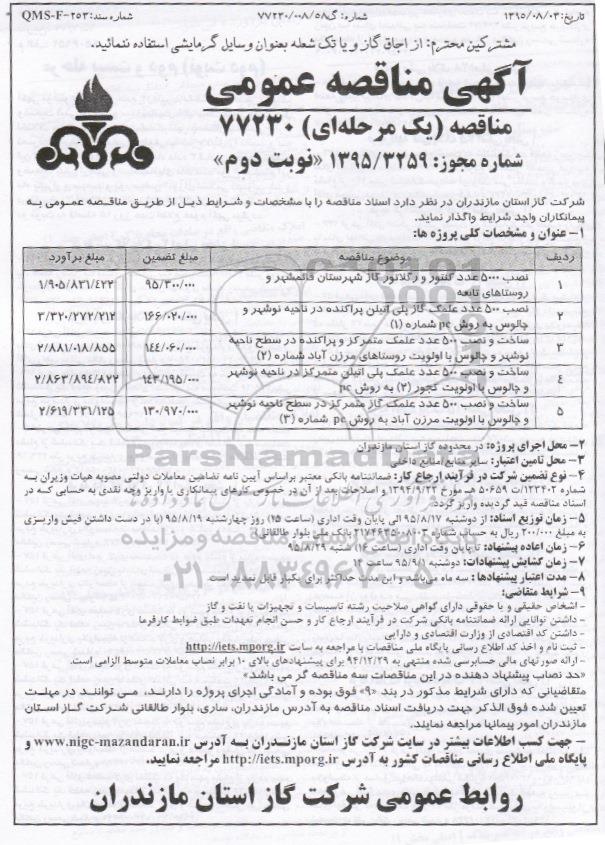 تاریخ: ۱۳۹۵/۰۸/۰۳
شماره: گ۷۷۲۳۰/۰۰۸/۵۸
شماره سند: QMS-F-۲۵۳
مشترکین محترم: از اجاق گاز و یا تک شعله بعنوان وسایل گرمایشی استفاده ننمائید.
آگهی مناقصه عمومی
مناقصه (یک مرحله‌ای) ۷۷۲۳۰
شماره مجوز: ۱۳۹۵/۳۲۵۹ «نوبت دوم»
شرکت گاز استان مازندران در نظر دارد اسناد مناقصه را با مشخصات و شرایط ذیل از طریق مناقصه عمومی به
پیمانکاران واجد شرایط واگذار نماید.
۱- عنوان و مشخصات کلی پروژه ها:
ردیف موضوع مناقصه مبلغ تضمین مبلغ برآورد
۱ نصب ۵۰۰۰ عدد کنتور و رگلاتور گاز شهرستان قائمشهر و روستاهای تابعه ۹۵/۳۰۰/۰۰۰ ۱/۹۰۵/۸۳۱/۴۲۲
۲ نصب ۵۰۰ عدد علمک گاز پلی اتیلن پراکنده در ناحیه نوشهر و چالوس به روش pc شماره (۱) ۱۶۶/۰۲۰/۰۰۰ ۳/۳۲۰/۲۷۲/۲۱۲
۳ ساخت و نصب ۵۰۰ عدد علمک متمرکز و پراکنده در سطح ناحیه نوشهر و چالوس با اولویت روستاهای مرزن آباد شماره (۲) ۱۴۴/۰۶۰/۰۰۰ ۲/۸۸۱/۰۱۸/۸۵۵
۴ ساخت و نصب ۵۰۰ عدد علمک پلی اتیلن متمرکز در ناحیه نوشهر و چالوس با اولویت کجور (۲) به روش pc ۱۴۳/۱۹۵/۰۰۰ ۲/۸۶۳/۸۹۴/۸۲۲
۵ ساخت و نصب ۵۰۰ عدد علمک گاز متمرکز در سطح ناحیه نوشهر و چالوس با اولویت مرزن آباد به روش pc شماره (۳) ۱۳۰/۹۷۰/۰۰۰ ۲/۶۱۹/۳۳۱/۱۲۵
۲- محل اجرای پروژه: در محدوده گاز استان مازندران
۳- محل تامین اعتبار: سایر منابع/منابع داخلی
۴- نوع تضمین شرکت در فرآیند ارجاع کار: ضمانتنامه بانکی معتبر براساس آیین نامه تضامین معاملات دولتی مصوبه هیات وزیران به
شماره ۱۲۳۴۰۲/ت ۵۰۶۵۹ هـ مورخ ۱۳۹۴/۹/۲۲ و اصلاحات بعد از آن در خصوص کارهای پیمانکاری یا واریز وجه نقدی به حسابی که در
اسناد مناقصه قید گردیده واریز گردد.
۵- زمان توزیع اسناد: از دوشنبه ۹۵/۸/۱۷ الی پایان وقت اداری (ساعت ۱۵) روز چهارشنبه ۹۵/۸/۱۹ (با در دست داشتن فیش واریزی
به مبلغ ۲۰۰/۰۰۰ ریال به حساب شماره ۲۱۷۴۶۳۵۰۰۸۰۰۳ بانک ملی بلوار طالقانی)
۶- زمان اعاده پیشنهاد: تا پایان وقت اداری (ساعت ۱۶) شنبه ۹۵/۸/۲۹
۷- زمان گشایش پیشنهادات: دوشنبه ۹۵/۹/۱ ساعت ۱۴
۸- مدت اعتبار پیشنهادها: سه ماه می‌باشد و این مدت حداکثر برای یکبار قابل تمدید است
۹- شرایط متقاضی:
- اشخاص حقیقی و یا حقوقی دارای گواهی صلاحیت رشته تاسیسات و تجهیزات یا نفت و گاز
- داشتن توانایی ارائه ضمانتنامه بانکی شرکت در فرآیند ارجاع کار و حسن انجام تعهدات طبق ضوابط کارفرما
- داشتن کد اقتصادی از وزارت اقتصادی و دارایی
- ثبت نام و اخذ کد اطلاع رسانی پایگاه ملی مناقصات با مراجعه به سایت http://iets.mporg.ir
- ارائه صورتهای مالی حسابرسی شده منتهی به ۹۴/۱۲/۲۹ برای پیشنهادهای بالای ۱۰ برابر نصاب معاملات متوسط الزامی است.
«حد نصاب پیشنهاد دهنده در این مناقصات سه مناقصه گر می باشد»
متقاضیانی که دارای شرایط مذکور در بند «۹» فوق بوده و آمادگی اجرای پروژه را دارند، می توانند در مهلت
تعیین شده فوق الذکر جهت دریافت اسناد مناقصه به آدرس مازندران، ساری، بلوار طالقانی شرکت گاز استان
مازندران امور پیمانها مراجعه نمایند.
– جهت کسب اطلاعات بیشتر در سایت شرکت گاز استان مازندران به آدرس www.nigc-mazandaran.ir و
پایگاه ملی اطلاع رسانی مناقصات کشور به آدرس http://iets.mporg.ir مراجعه نمایید.
روابط عمومی شرکت گاز استان مازندران
ParsNamadData
۰۲۱-۸۸۳۴۹۶۷۰